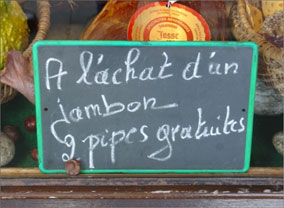 A l'achat d'un
jambon
2 pipes gratuites